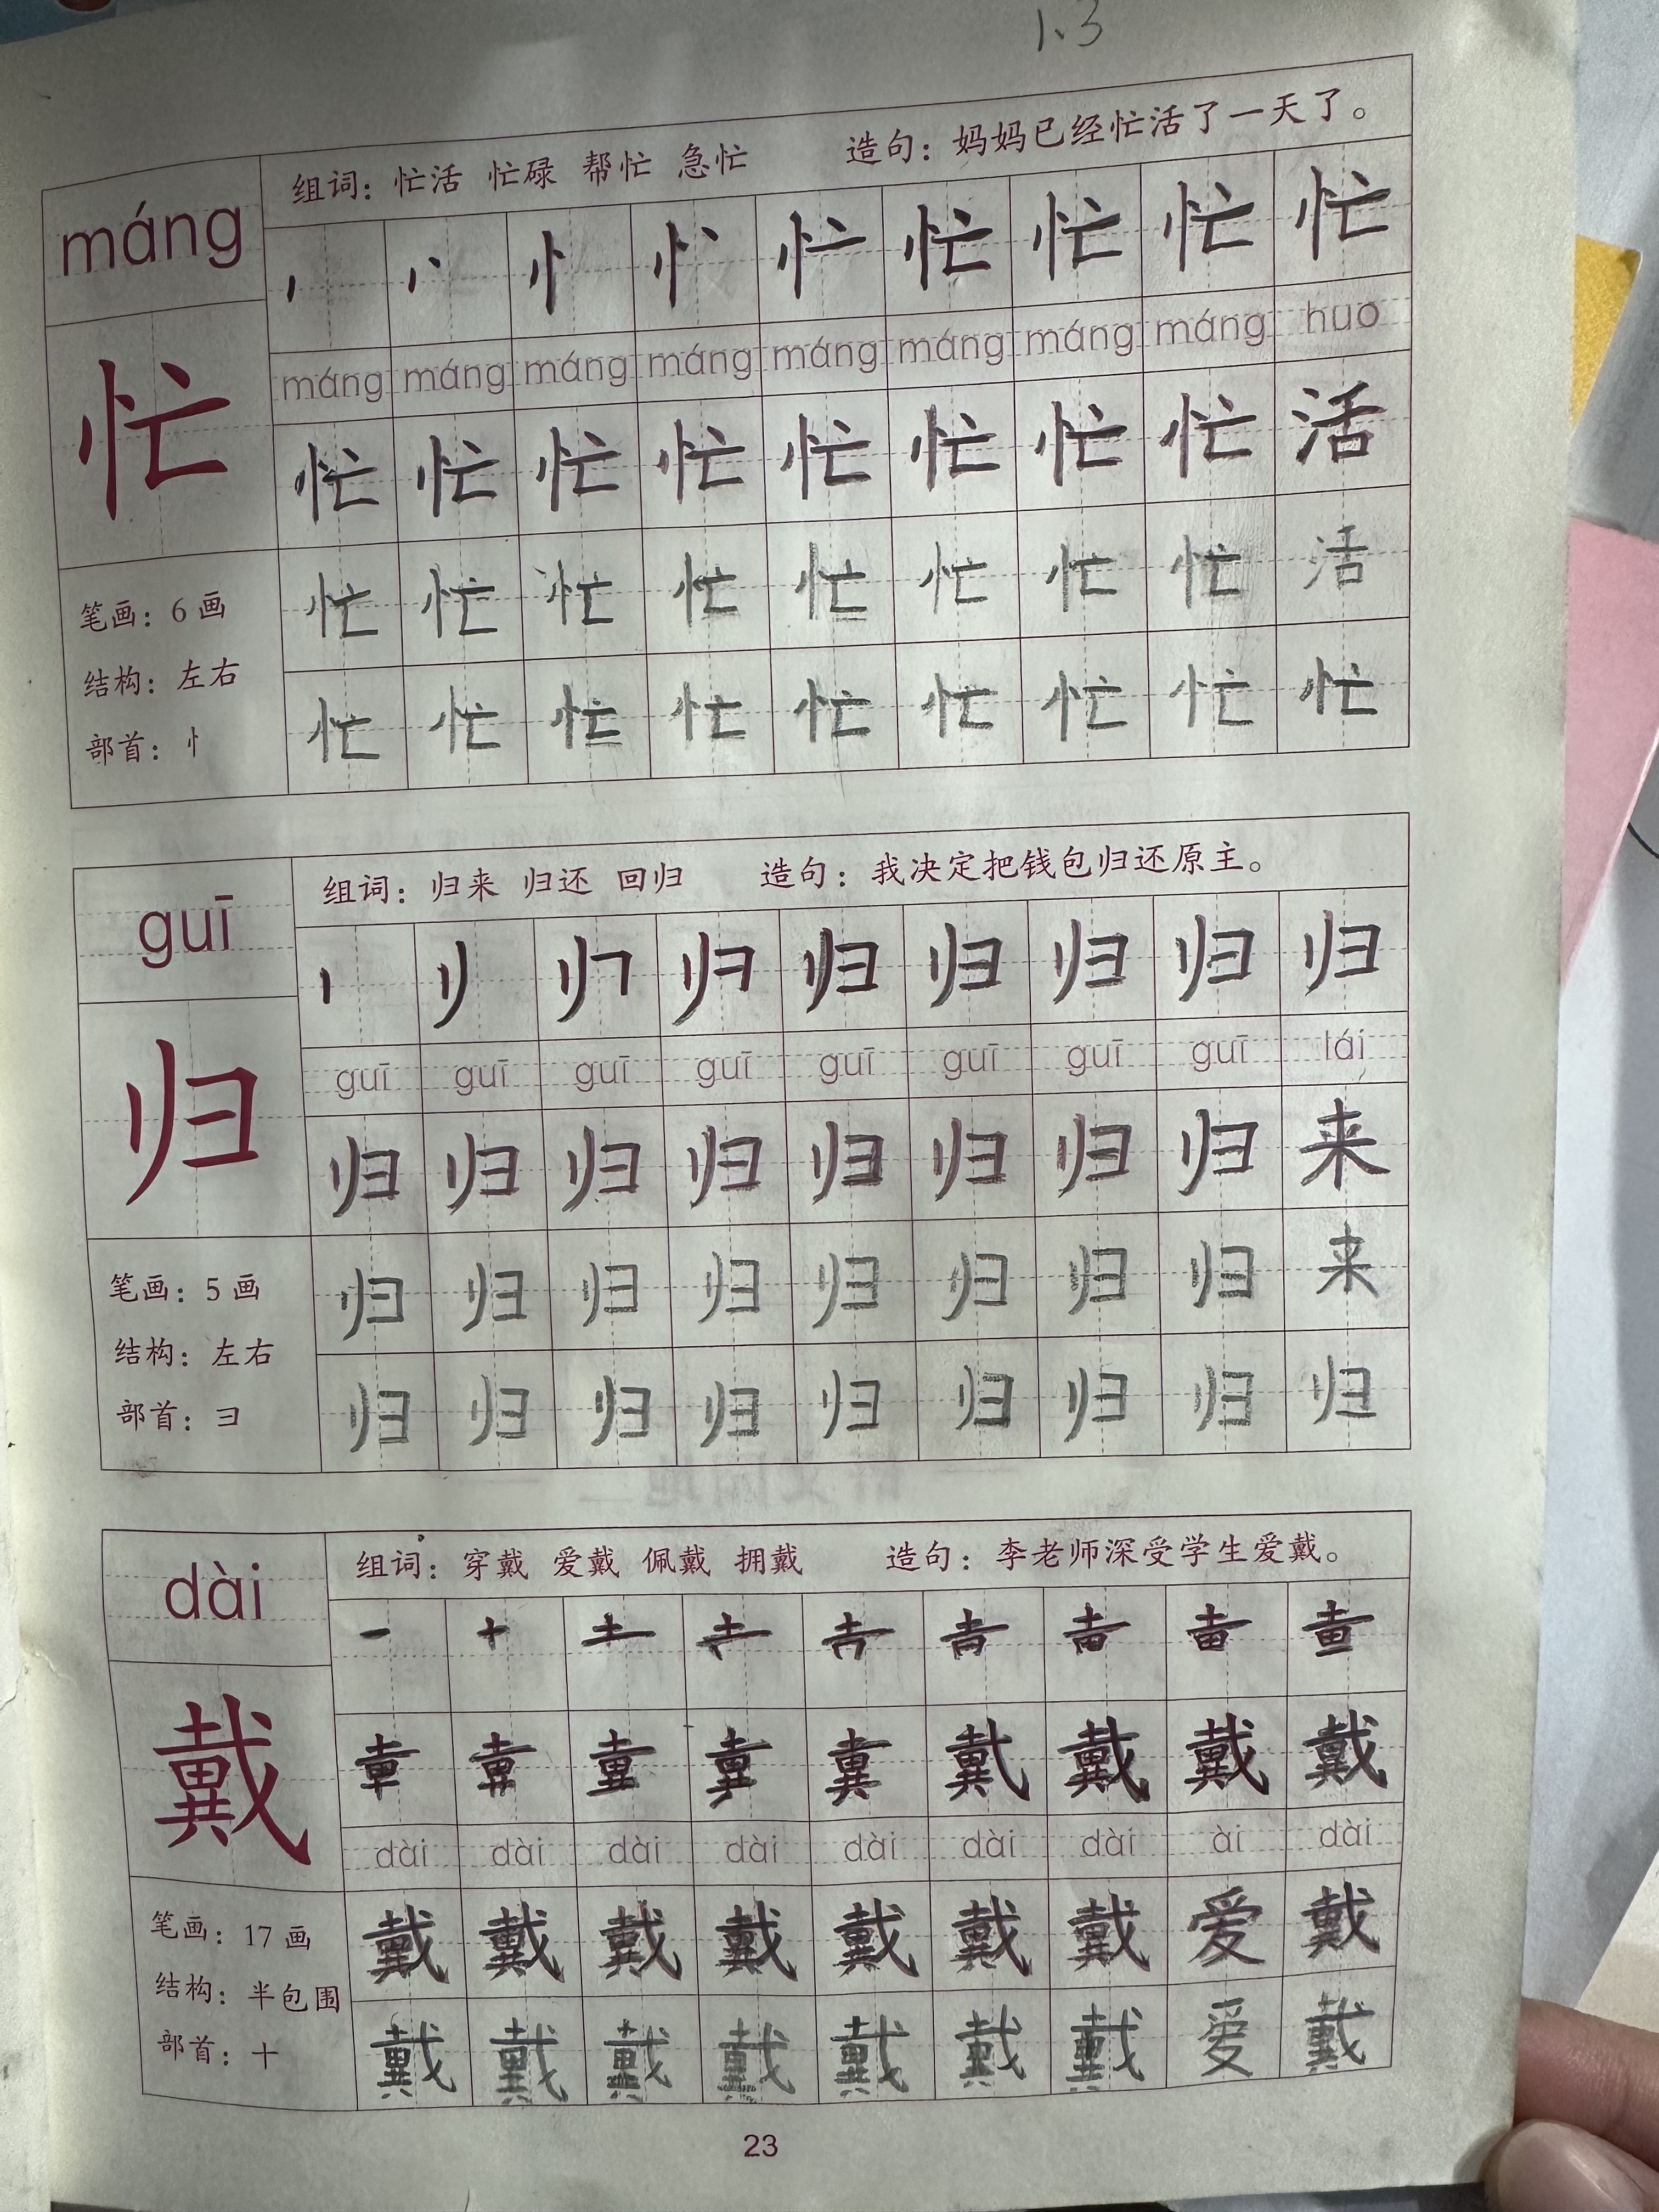 1、3
máng
组词：忙活 忙碌 帮忙 急忙 造句：妈妈已经忙活了一天了。
忙 忙 忙 忙
máng máng máng máng máng máng máng máng huo
忙
忙 忙 忙 忙 忙 忙 忙 忙 活
笔画：6 画
忙 忙 忙 忙 忙 忙 忙 忙 活
结构：左右
部首：忄
忙 忙 忙 忙 忙 忙 忙 忙 忙
guī
组词：归来 归还 回归 造句：我决定把钱包归还原主。
归 归 归 归 归
guī guī guī guī guī guī guī guī lái
归
归 归 归 归 归 归 归 归 来
笔画：5 画
归 归 归 归 归 归 归 归 来
结构：左右
部首：彐
归 归 归 归 归 归 归 归 归
dài
组词：穿戴 爱戴 佩戴 拥戴 造句：李老师深受学生爱戴。
戴
戴 戴
dài dài dài dài dài dài dài ài dài
笔画：17 画
戴 戴 戴 戴 戴 戴 戴 爱 戴
结构：半包围
部首：十
戴 戴 戴 戴 戴 戴 戴 爱 戴
23